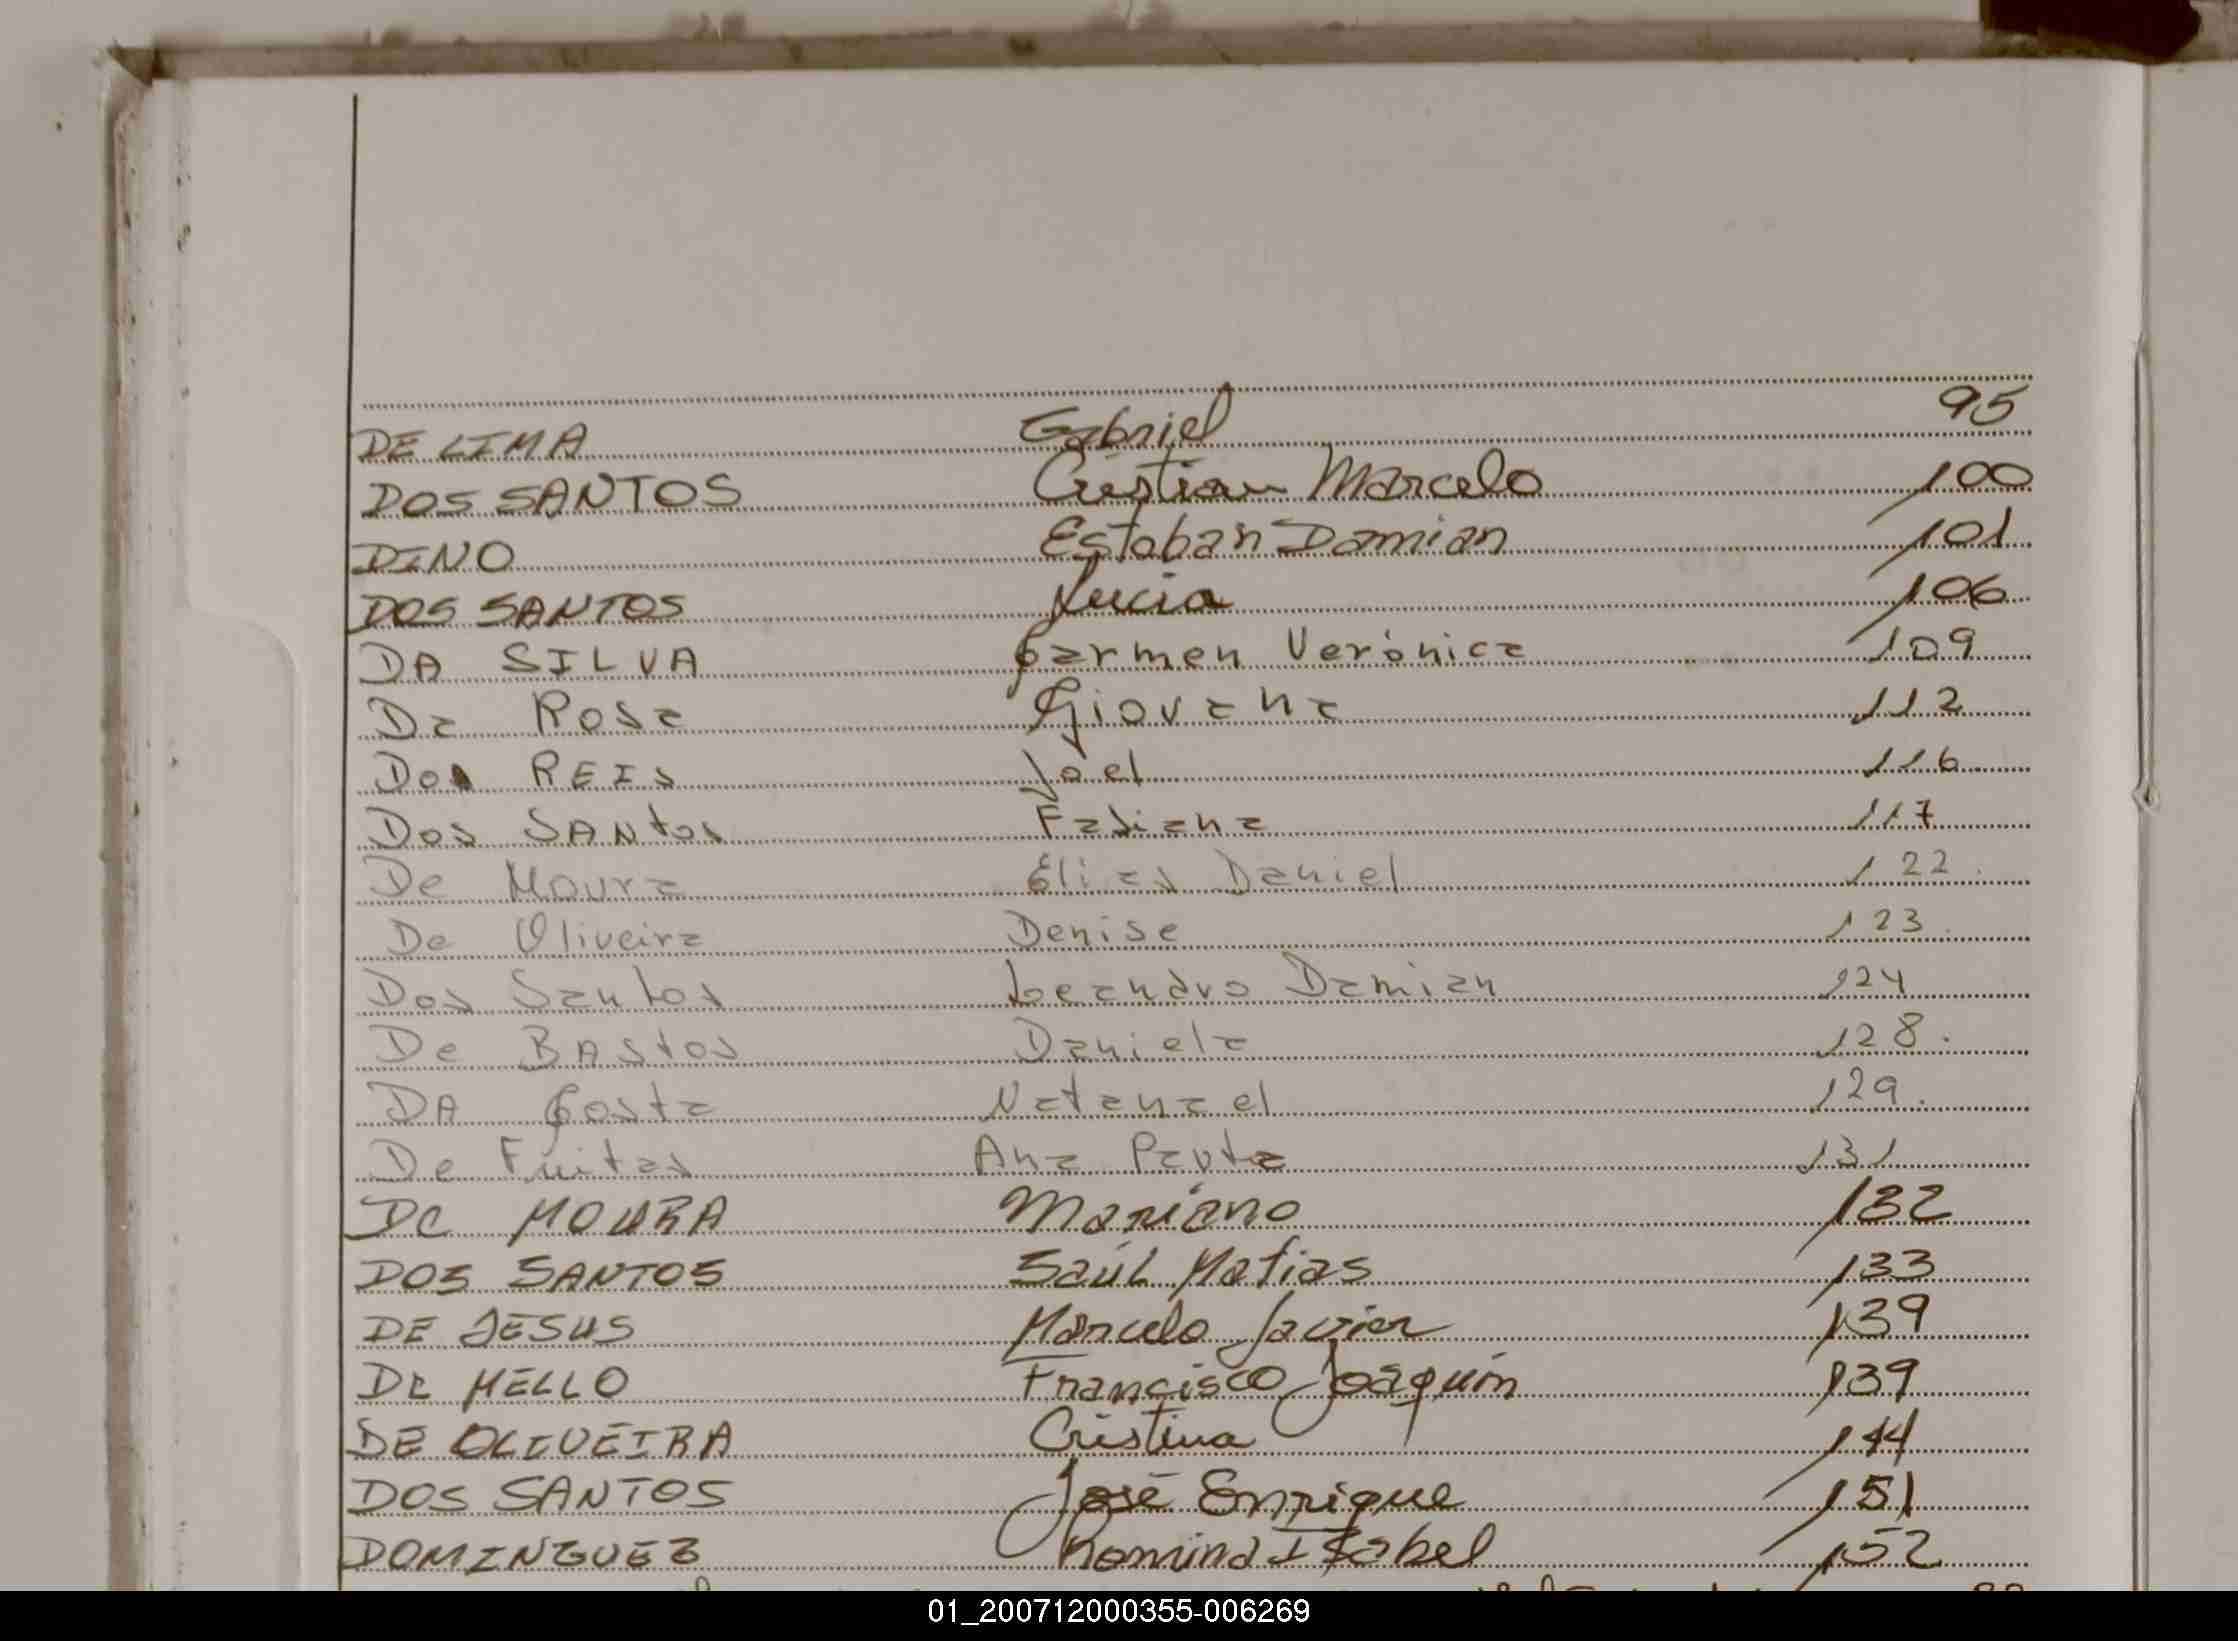 DE LIMA Gabriel 95
DOS SANTOS Cristian Marcelo 100
DINO Estaban Damian 101
DOS SANTOS Lucia 106
DA SILVA Carmen Verónica 109
Da Rosa Giovana 112
Dos REIS Joel 116
Dos SANtos Fabiana 117
De Moura Elias Daniel 122
De Oliveira Denise 123
Dos Santos Leandro Damian 124
De BAstos Daniela 128
DA Costa Natanael 129
De Fuitas Ana Paula 131
DE MOURA Mariano 132
DOS SANTOS Saúl Matias 133
DE JESUS Marcelo Javier 139
DE MELLO Francisco Joaquin 139
DE OLIVEIRA Cristina 144
DOS SANTOS José Enrique 151
DOMINGUEZ Romina Isabel 152
01_200712000355-006269